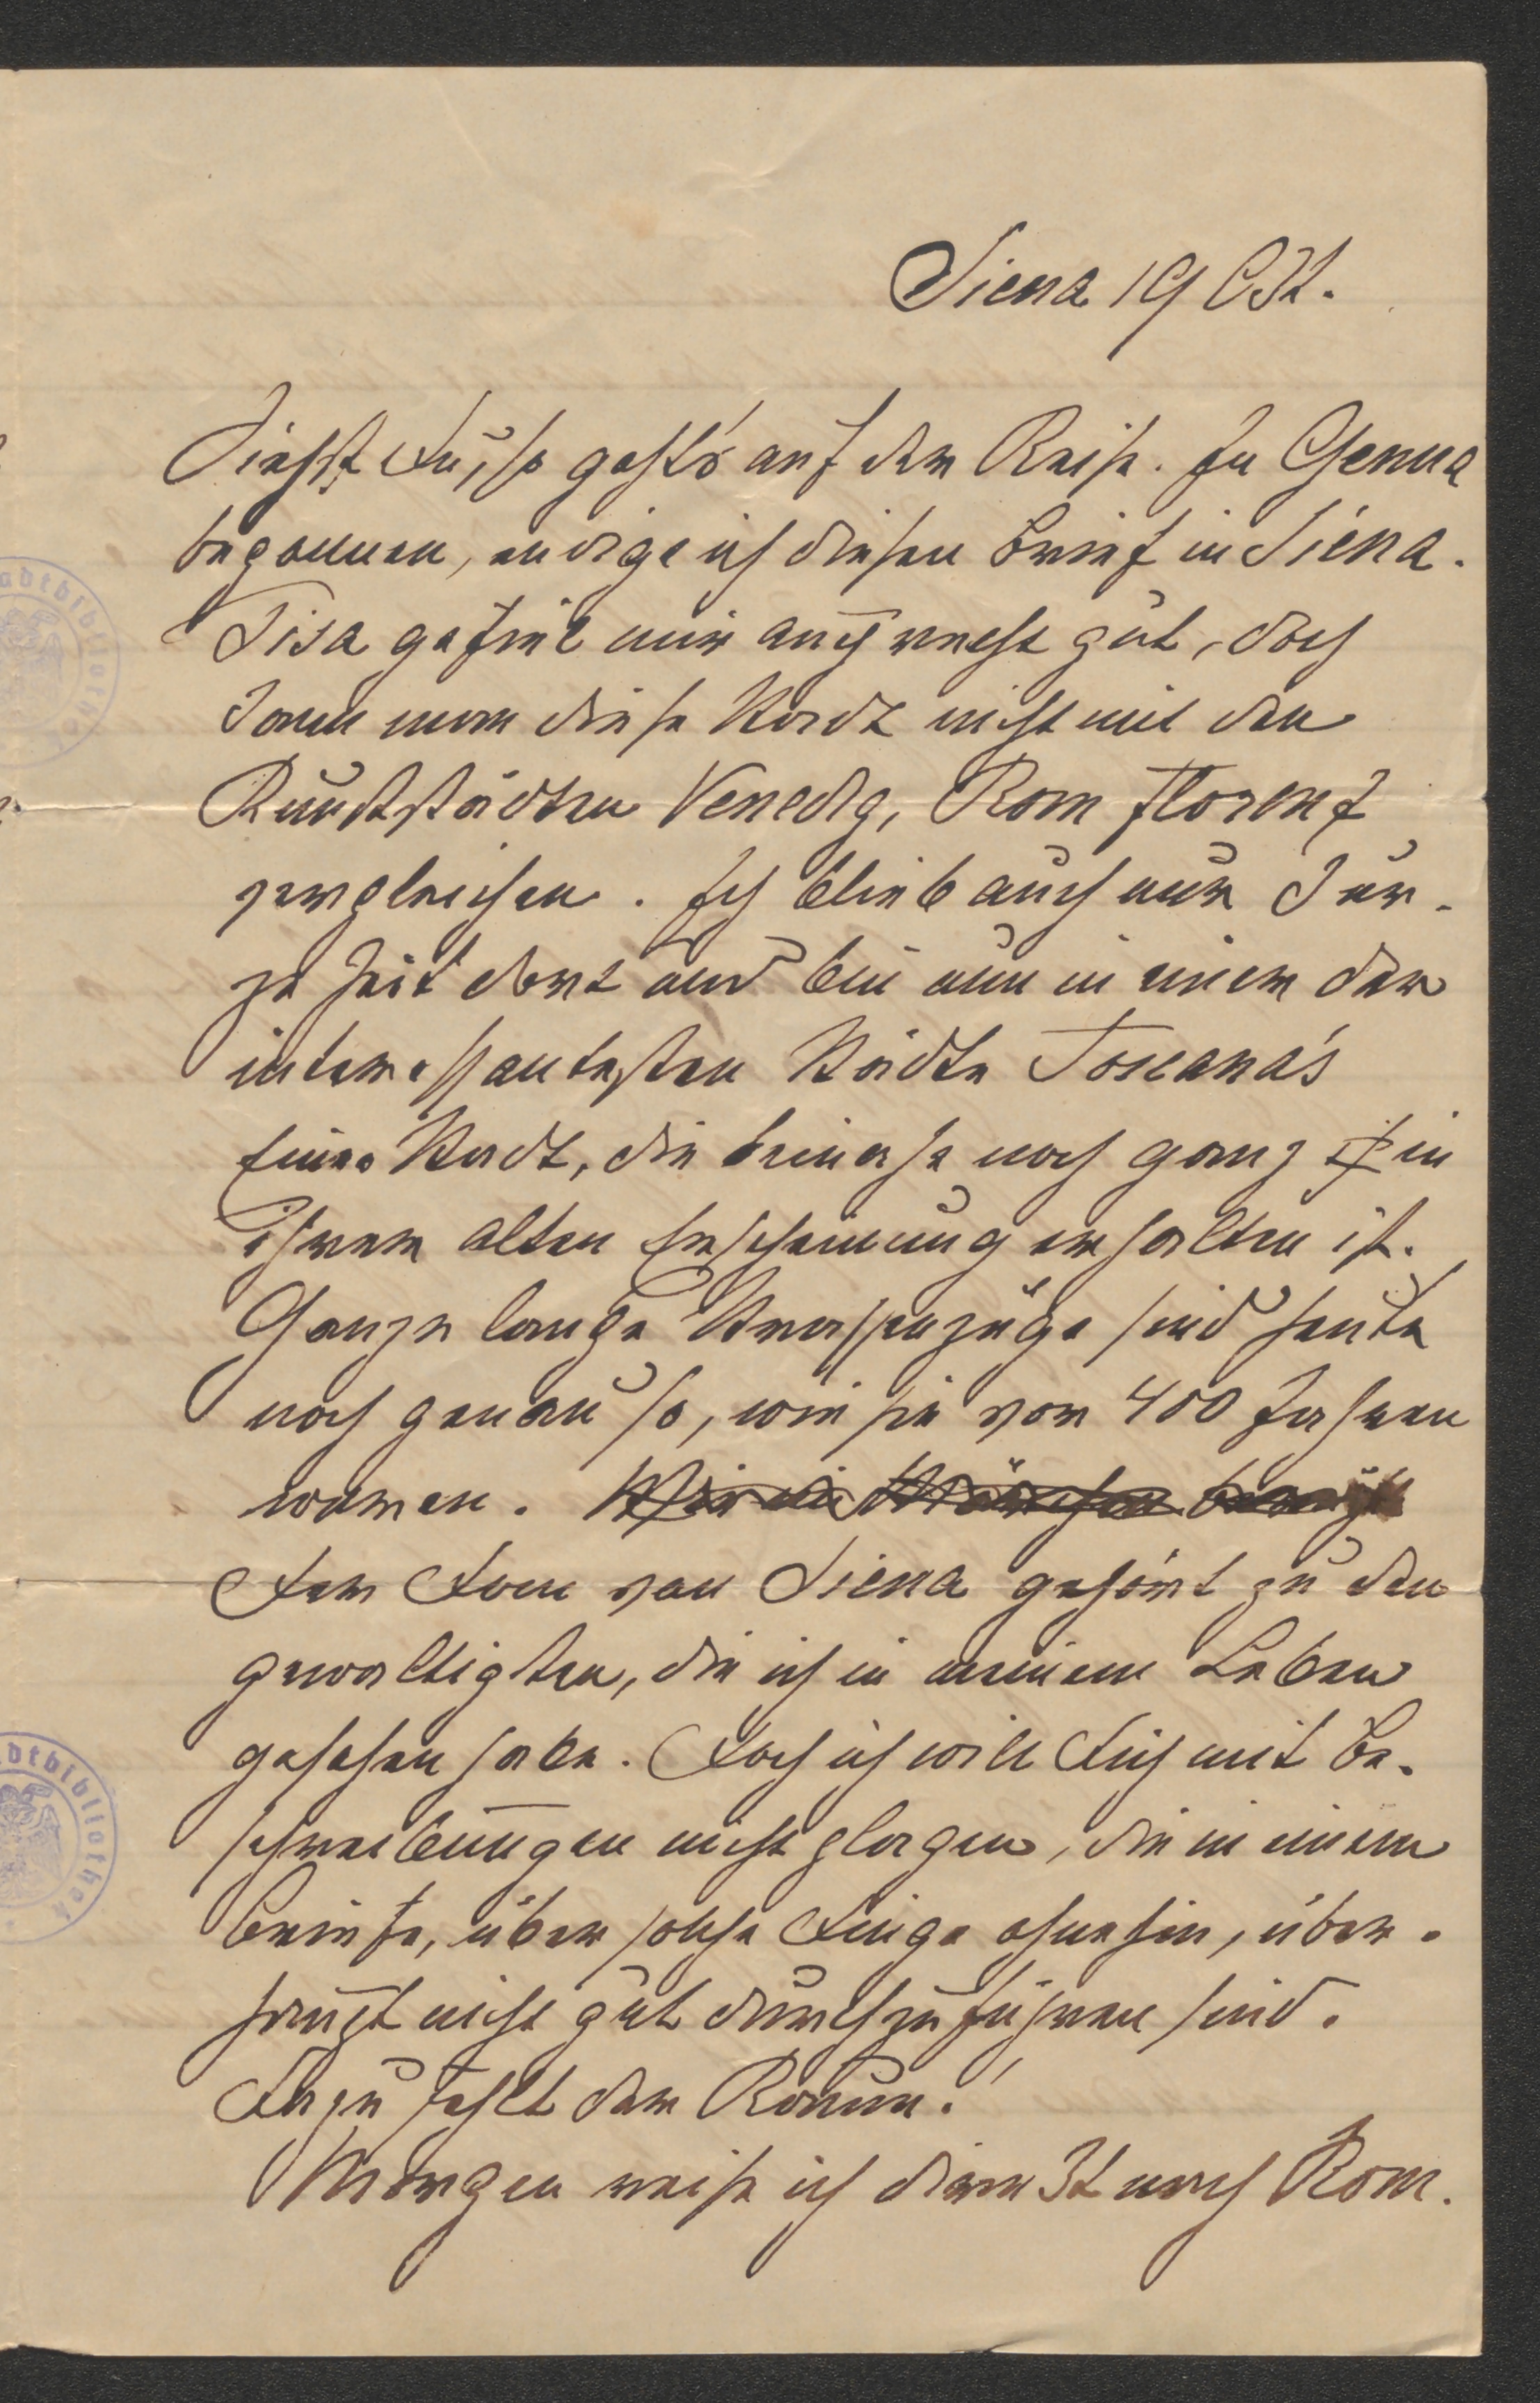 Siena 19 Okt.
Siehst Du, so geht's auf der Reise. In Genua
begonnen, endige ich diesen Brief in Siena.
Pisa gefiel mir auch recht gut, doch
kann man diese Stadt nicht mit den
Kunststädten Venedig, Rom Florenz
vergleichen. Ich blieb auch nur kur-
ze Zeit dort und bin nun in einer der
interessantesten Städte Toscana's
Eine Stadt, die beinahe noch ganz in
ihrer alten Erscheinung erhalten ist.
Ganze lange Strassenzüge sind heute
noch genau so, wie sie vor 400 Jahren
waren. Wie ein Märchen
Der Dom von Siena gehört zu den
gewaltigsten, die ich in meinem Leben
gesehen habe. Doch ich will Dich mit Be-
schreibungen nicht plagen, die in einem
Briefe, über solche Dinge ohnehin, über-
haupt nicht gut durchzuführen sind.
Dazu fehlt der Raum!
Morgen reise ich direkt nach Rom.
Stadtbibliothek
Stadtbibliothek